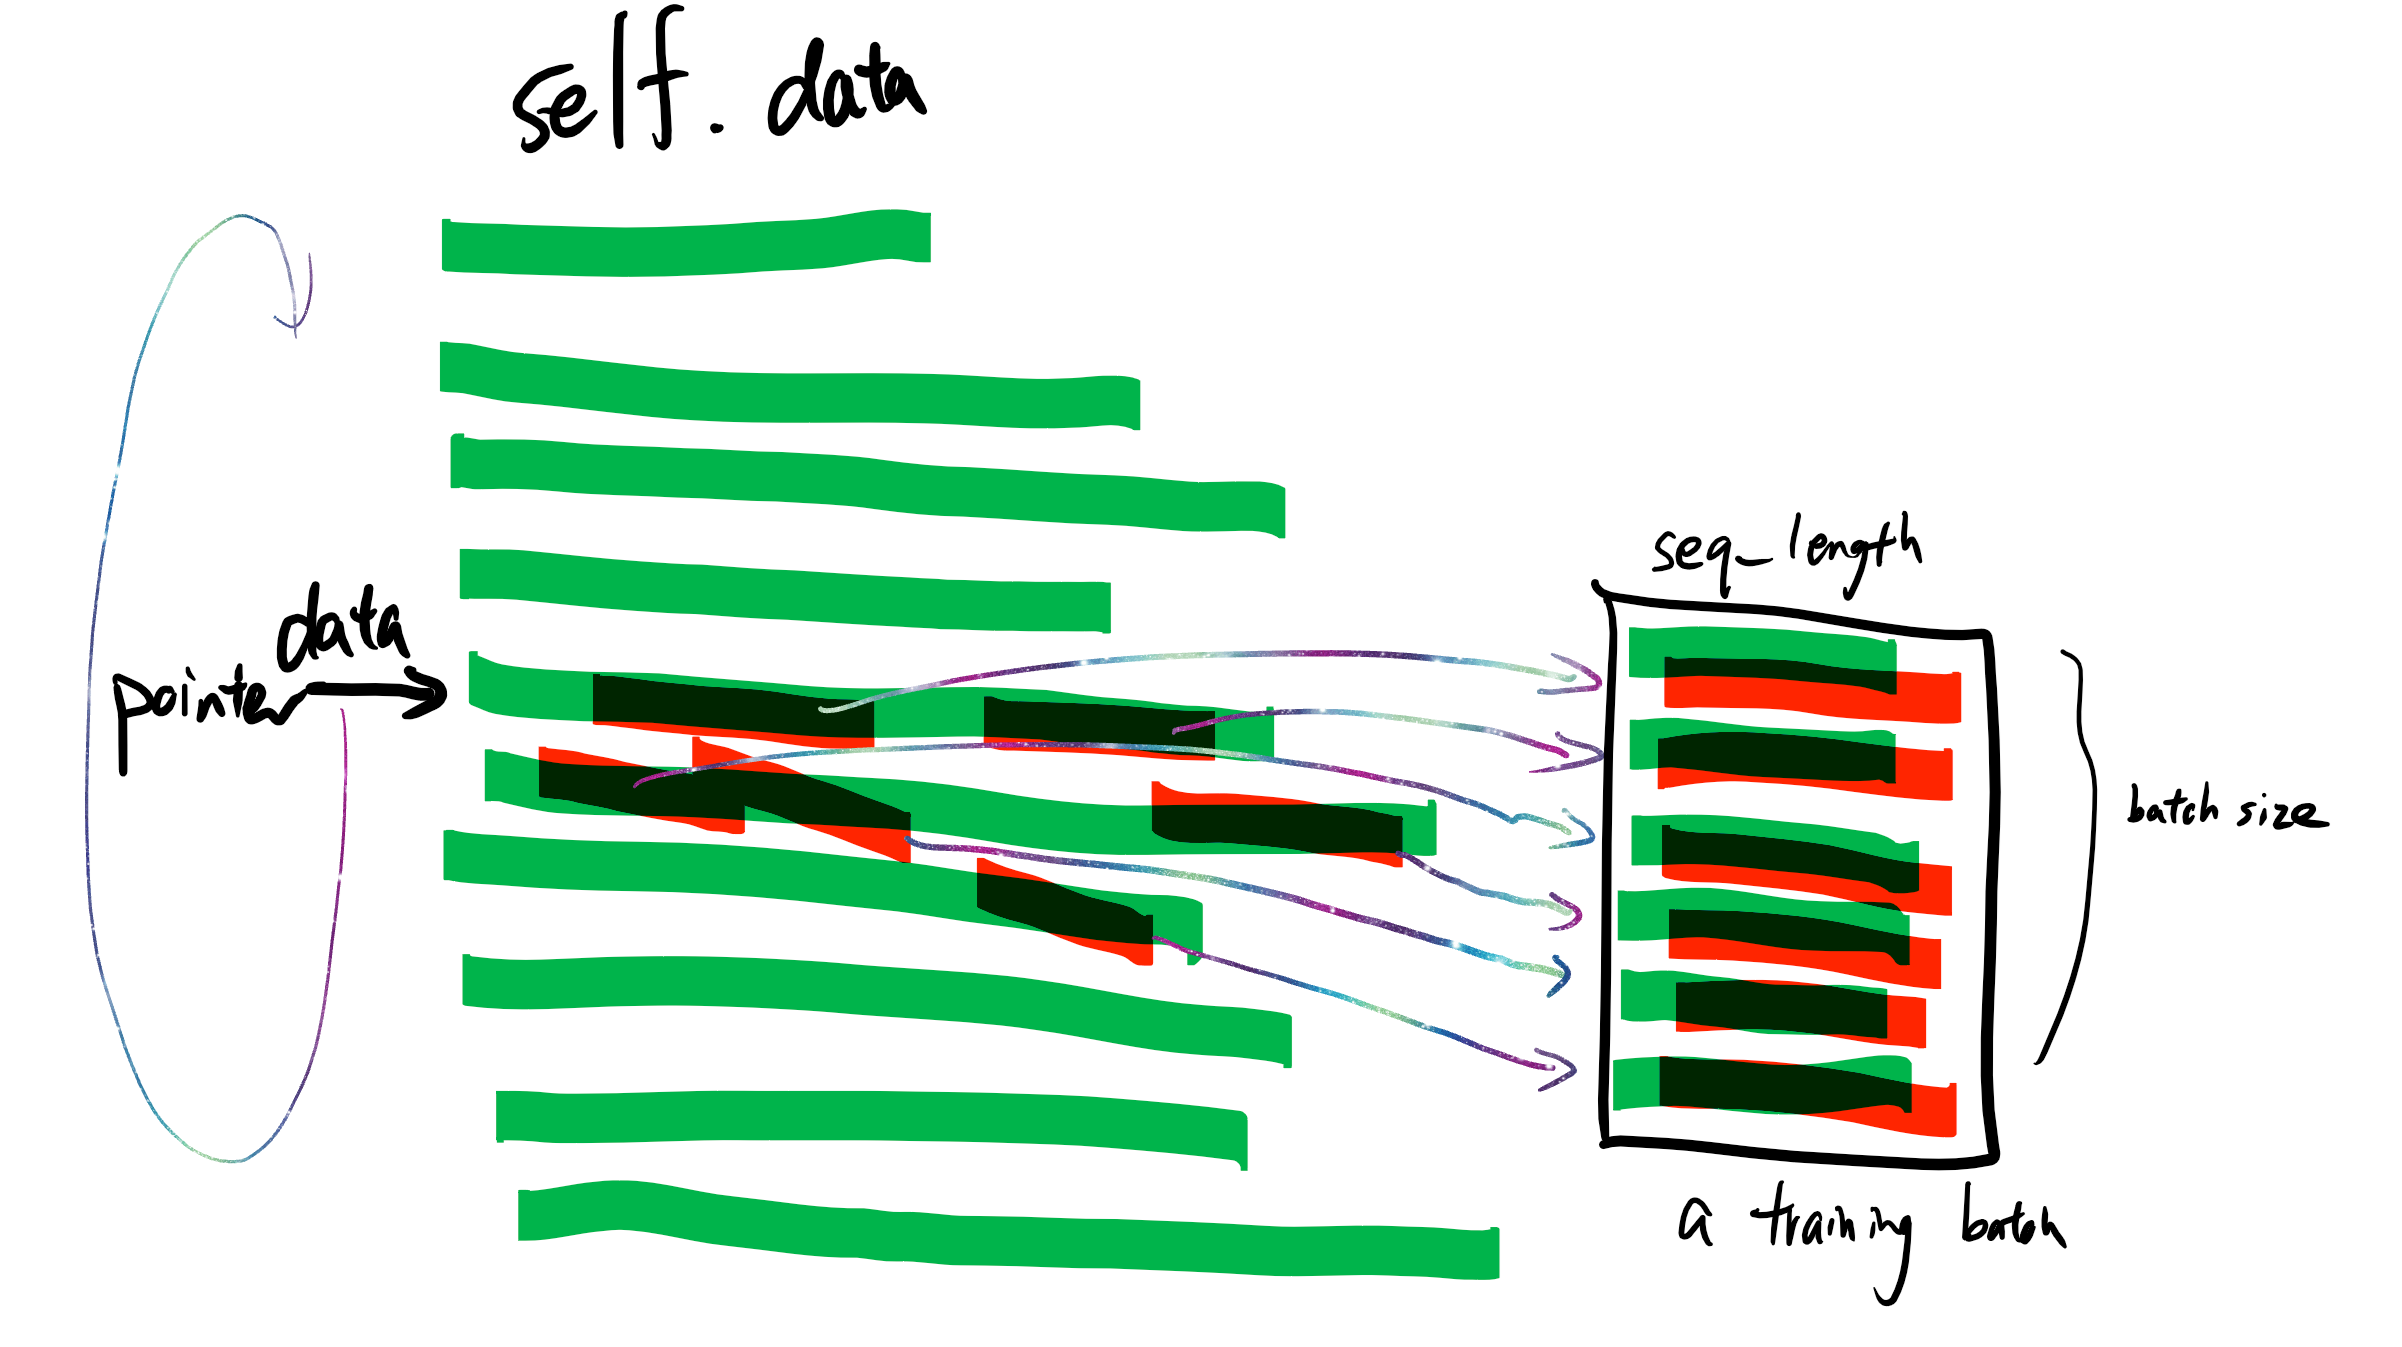 self.data
data
pointer
seq_length
batch size
a training batch